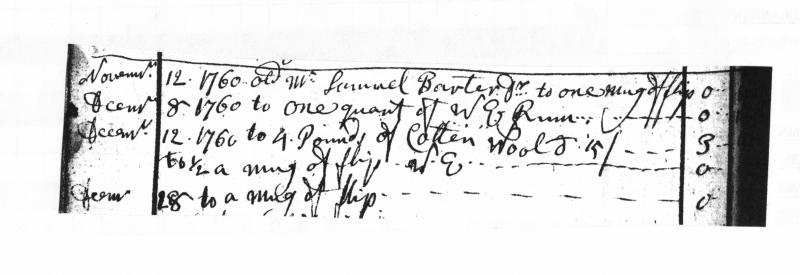 Novemr. 12. 1760 old Mr. Samuel Baxter Jr. to one mug of flip 0
Decemr 8 1760 to one quart of W E Rum 0
Decemr. 12. 1760 to 4 Pounds of Cotten Wool 15/ 3
to 1/2 a mug of flip W E 0
Decemr 28 to a mug of flip 0